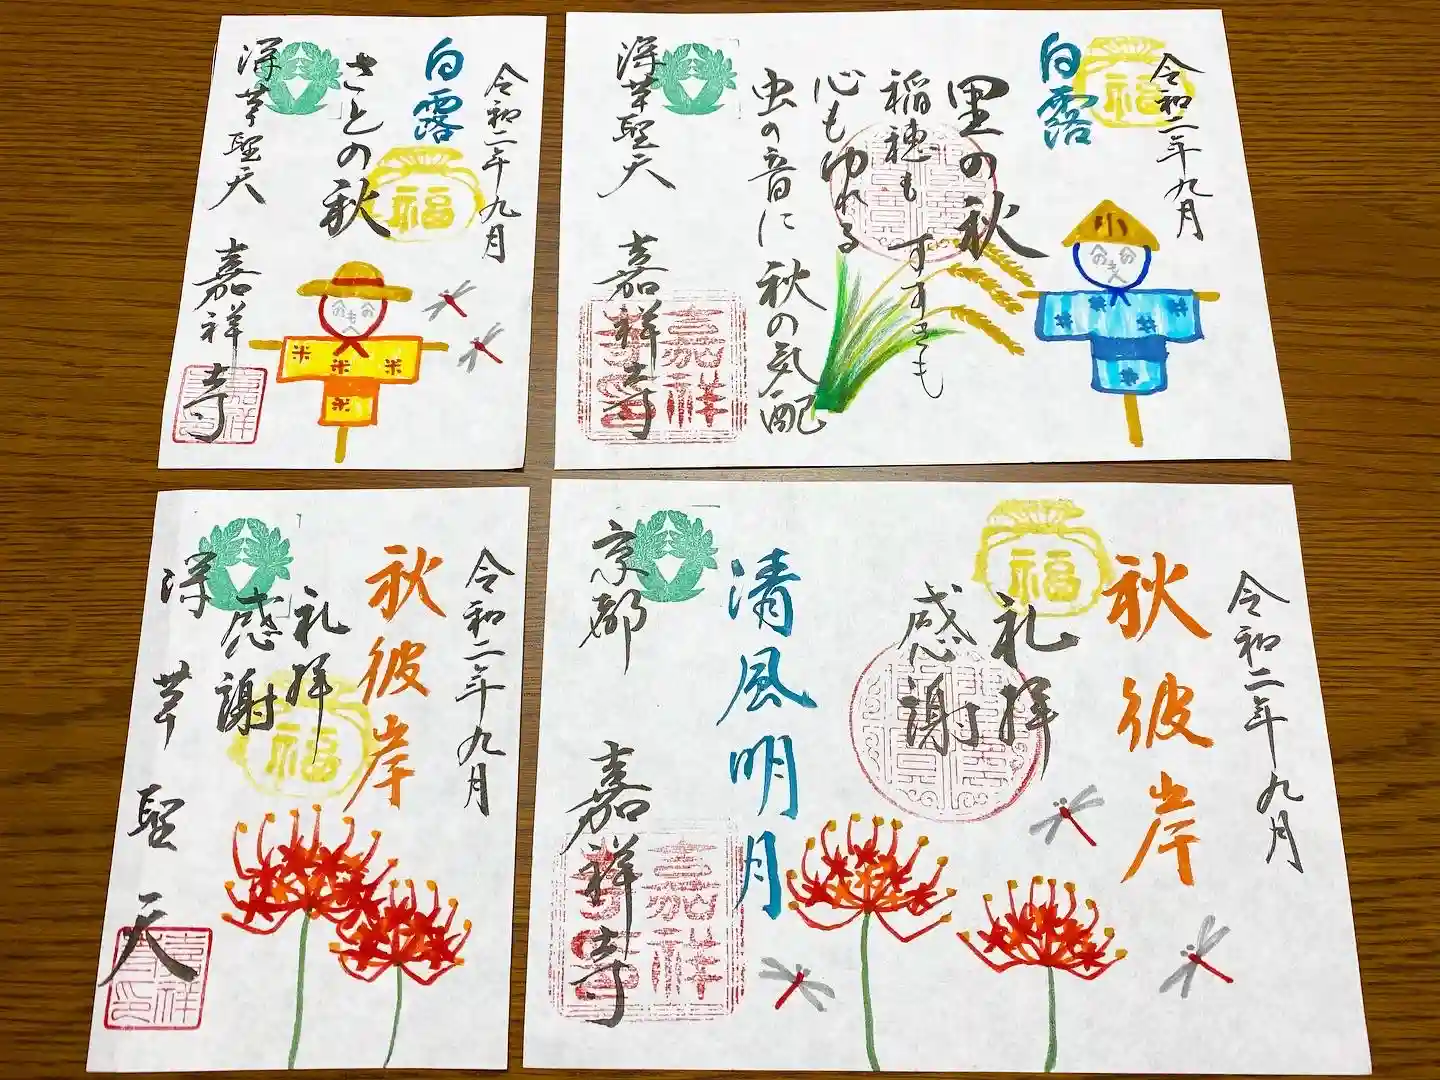 令和二年九月
白露
福
さとの秋
のもへの
米
米
米
米
深草聖天 嘉祥寺
嘉祥寺印
令和二年九月
福
白露
小
のもへの
米
米
米
米
里の秋
稲穂もすすきも
心もゆれる
虫の音に秋の気配
深草聖天 嘉祥寺
嘉祥
令和二年九月
秋彼岸
福
礼拝
感謝
深草聖天
嘉祥寺印
令和二年九月
秋彼岸
福
礼拝
感謝
清風明月
京都 嘉祥寺
嘉祥